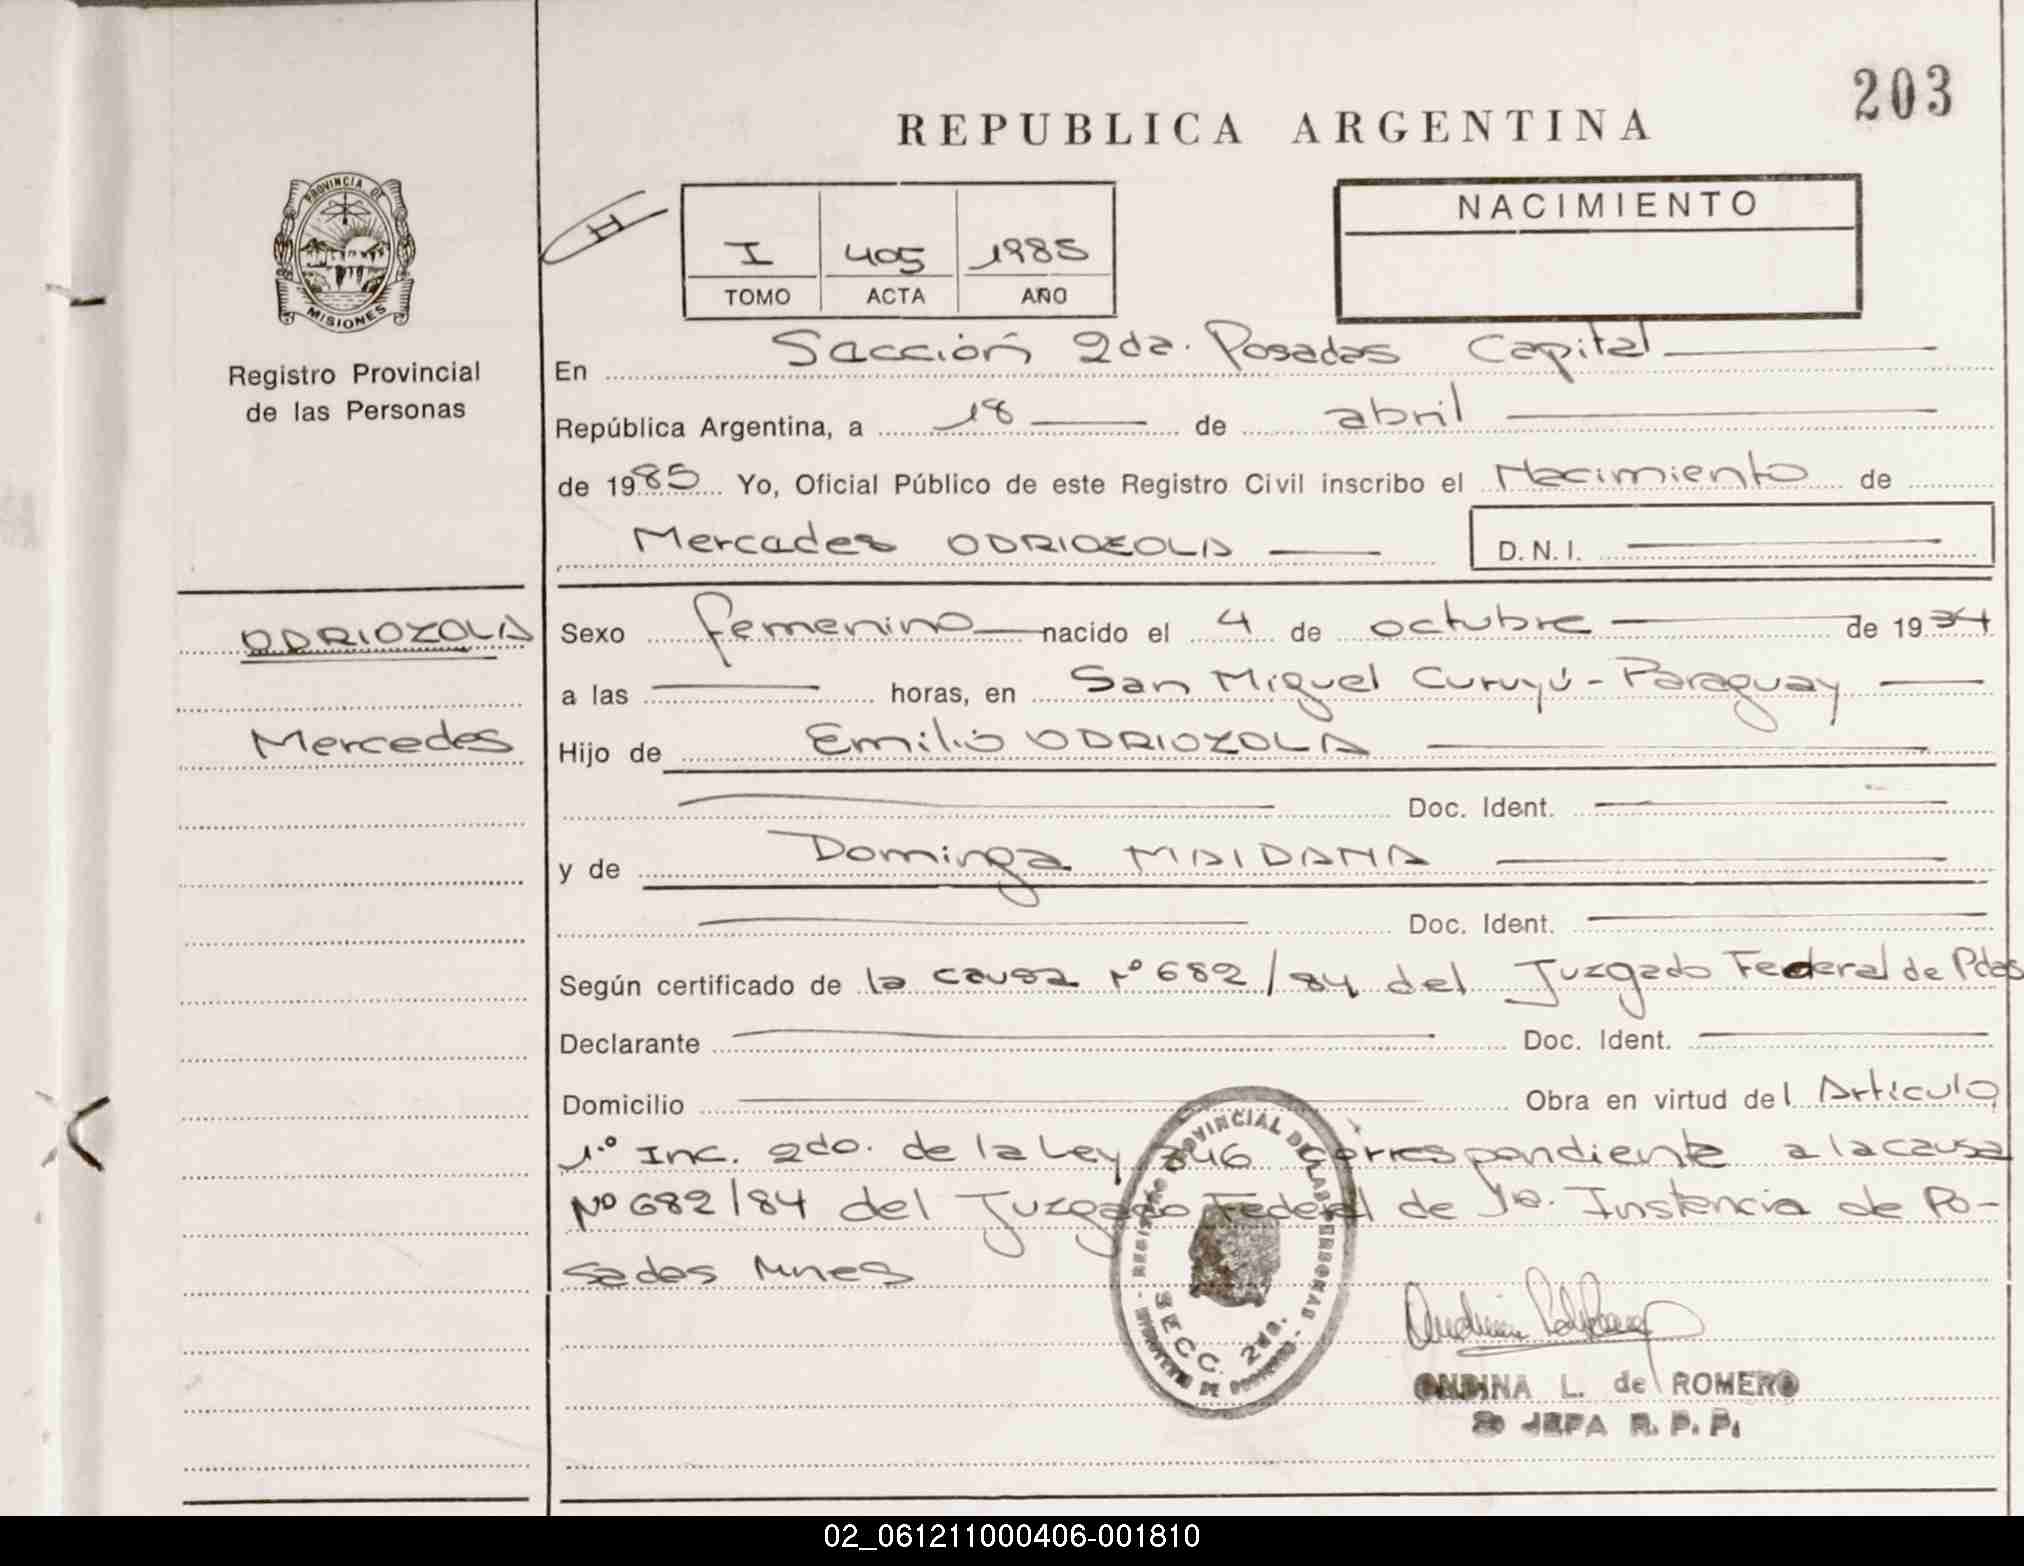 203
REPUBLICA ARGENTINA
PROVINCIA DE
MISIONES
Registro Provincial
de las Personas
I 405 1985
TOMO ACTA AÑO
NACIMIENTO
En Sección 2da. Posadas Capital
República Argentina, a 18 de abril
de 1985 Yo, Oficial Público de este Registro Civil inscribo el Nacimiento de
Mercedes ODRIOZOLA D.N.I.
ODRIOZOLA
Mercedes
Sexo femenino nacido el 4 de octubre de 1934
a las horas, en San Miguel Curuyú - Paraguay
Hijo de Emilio ODRIOZOLA
Doc. Ident.
y de Dominga MAIDANA
Doc. Ident.
Según certificado de la causa Nº 682/84 del Juzgado Federal de Pdas
Declarante Doc. Ident.
Domicilio Obra en virtud del Artículo
1º Inc. 2do. de la Ley 346 correspondiente a la causa
Nº 682/84 del Juzgado Federal de 1a. Instancia de Po-
sadas Mnes
REGISTRO PROVINCIAL DE LAS PERSONAS
SECC. 2da.
ONDINA L. de ROMERO
JEFA R. P. P.
02_061211000406-001810